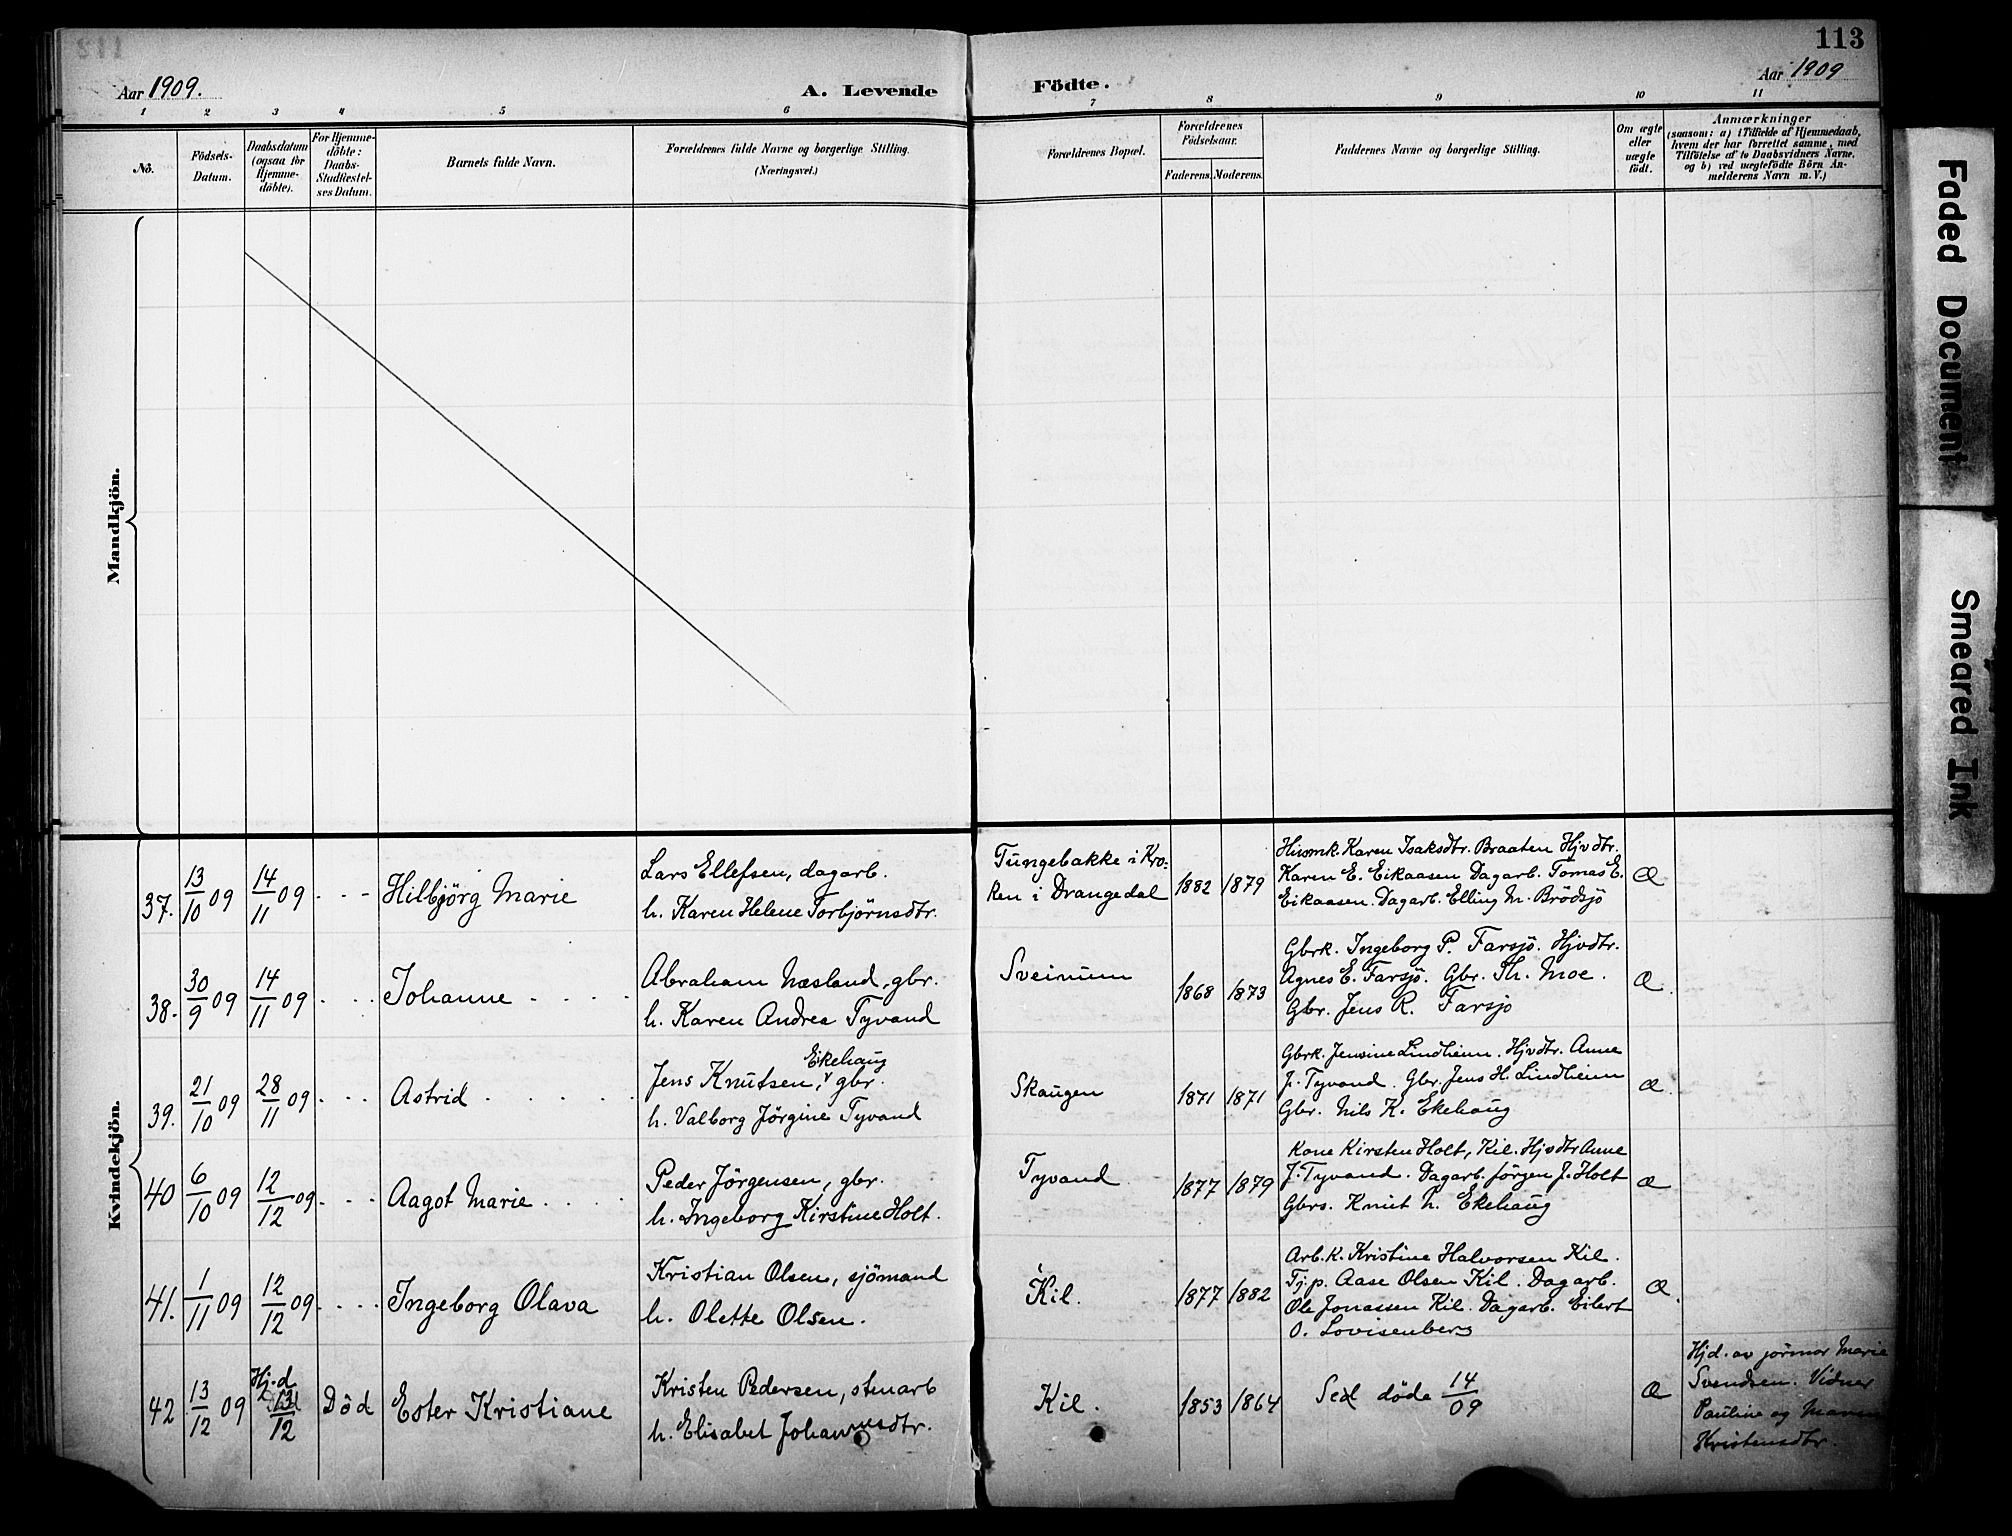 113
Aar 1909.
A. Levende
Födte.
Aar 1909
1 2 3 4 5 6 7 8 9 10 11
No.
Födsels-
Datum.
Daabsdatum
(ogsaa for
Hjemme-
döbte).
For Hjemme-
döbte:
Daabs-
Stadfæstel-
ses Datum.
Barnets fulde Navn.
Forældrenes fulde Navne og borgerlige Stilling.
(Næringsvei.)
Forældrenes Bopæl.
Forældrenes
Födselsaar.
Faderens. Moderens.
Faddernes Navne og borgerlige Stilling.
Om ægte
eller
uægte
födt.
Anmærkninger
(saasom: a) i Tilfælde af Hjemmedaab,
hvem der har forrettet samme, med
Tilföielse af to Daabsvidners Navne,
og b) ved uægtefödte Börn An-
melderens Navn m. V.)
Mandkjön.
Kvindekjön.
37. 13/10 09 14/11 09 - - - Hilbjörg Marie
Lars Ellefsen, dagarb.
h. Karen Helene Torbjörnsdtr.
Tungebakke i Kro-
ken i Drangedal
1882 1879
Husmk. Karen Isaksdtr. Braaten Hjvdtr.
Karen E. Eikaasen Dagarb. Tomas E.
Eikaasen. Dagarb. Elling M. Brödsjö
Æ
38. 30/9 09 14/11 09 . . . Johanne . . . .
Abraham Næsland, gbr.
h. Karen Andrea Tyvand
Sveinum
1868 1873
Gbrk. Ingeborg P. Farsjö. Hjvdtr.
Agnes E. Farsjö. Gbr. Th. Moe.
Gbr. Jens R. Farsjö
Æ.
39. 21/10 09 28/11 09 . . . Astrid . . . . .
Ekehaug
Jens Knutsen, gbr.
h. Valborg Jörgine Tyvand
Skaugen
1871 1871
Gbrk. Jensine Lindheim. Hjvdtr. Anne
J. Tyvand. Gbr. Jens H. Lindheim
Gbr. Nils K. Ekehaug
Æ.
40 6/10 09 12/12 09 . . . Aagot Marie . . .
Peder Jörgensen, gbr.
h. Ingeborg Kirstine Holt.
Tyvand
1877 1879
Kone Kirsten Holt, Kil. Hjvdtr Anne
J. Tyvand. Dagarb. Jörgen J. Holt
Gbrs. Knut N. Ekehaug
Æ
41. 1/11 09 12/12 09 . . . . Ingeborg Olava
Kristian Olsen, sjömand
h. Olette Olsen.
Kil.
1877 1882
Arb.k. Kristine Halvorsen Kil.
Tjp. Aase Olsen Kil. Dagarb.
Ole Jonassen Kil. Dagarb. Eilert
O. Lovisenberg
Æ.
42 13/12 09 Hj.d 13/12 Död Ester Kristiane
Kristen Pedersen, stenarb
h. Elisabet Johannesdtr.
Kil.
1853 1864
Sed döde 14/09
Æ
Hjd. av jormor Marie
Svendsen. Vidner
Pauline og Maren
Kristensdtr.
Faded Document
Smeared Ink